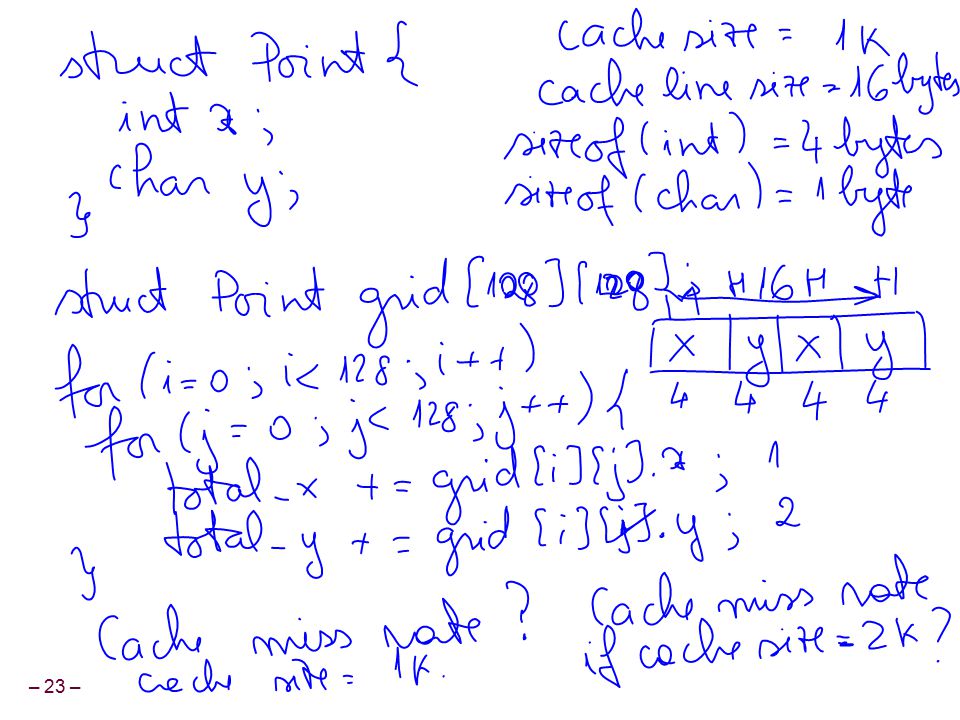 struct Point {
int x;
char y;
}
cache size = 1K
cache line size = 16 bytes
sizeof(int) = 4 bytes
sizeof(char) = 1 byte
struct Point grid[128][128];
16
x y x y
4 4 4 4
for (i=0; i<128; i++)
for (j=0; j<128; j++) {
total_x += grid[i][j].x; 1
total_y += grid[i][j].y; 2
}
Cache miss rate?
cache size = 1K.
Cache miss rate
if cache size = 2K?
– 23 –